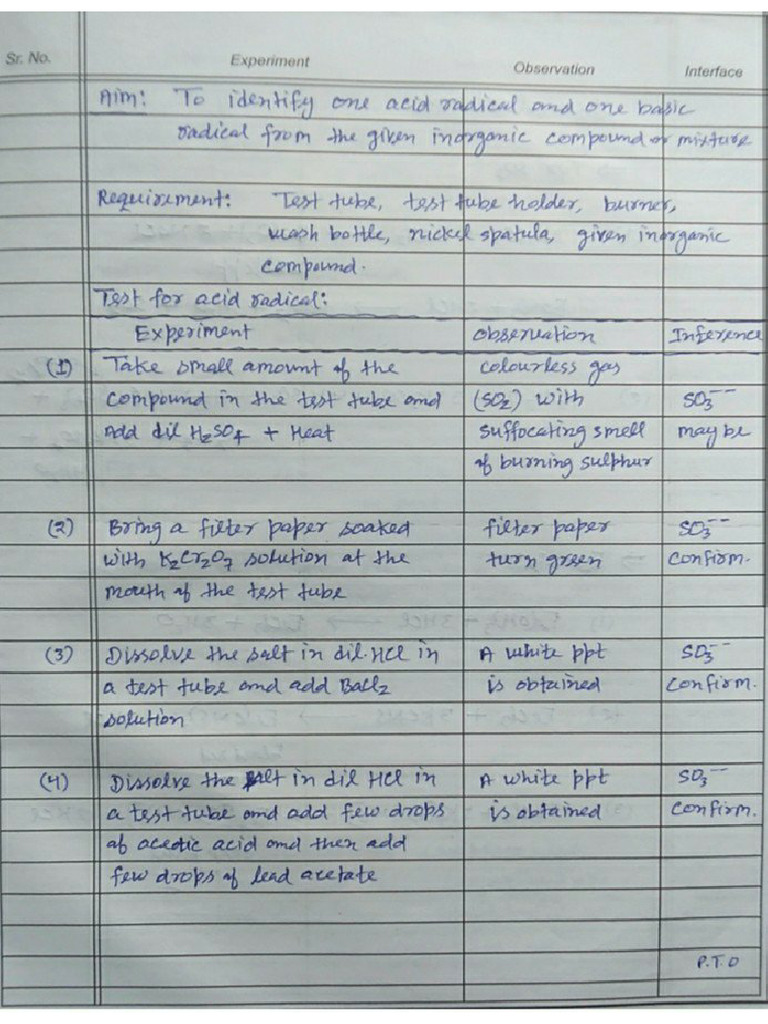 Sr. No. Experiment Observation Interface
Aim: To identify one acid radical and one basic
radical from the given inorganic compound or mixture
Requirement: Test tube, test tube holder, burner,
wash bottle, nickel spatula, given inorganic
compound.
Test for acid radical:
Experiment Observation Inference
(1) Take small amount of the colourless gas
compound in the test tube and (SO₂) with SO₃⁻⁻
Add dil H₂SO₄ + Heat suffocating smell may be
of burning sulphur
(2) Bring a filter paper soaked filter paper SO₃⁻⁻
with K₂Cr₂O₇ solution at the turn green confirm.
mouth of the test tube
(3) Dissolve the salt in dil. HCl in A white ppt SO₃⁻⁻
a test tube and add BaCl₂ is obtained confirm.
solution
(4) Dissolve the salt in dil HCl in A white ppt SO₃⁻⁻
a test tube and add few drops is obtained confirm.
of aceotic acid and then add
few drops of lead acetate
P.T.O